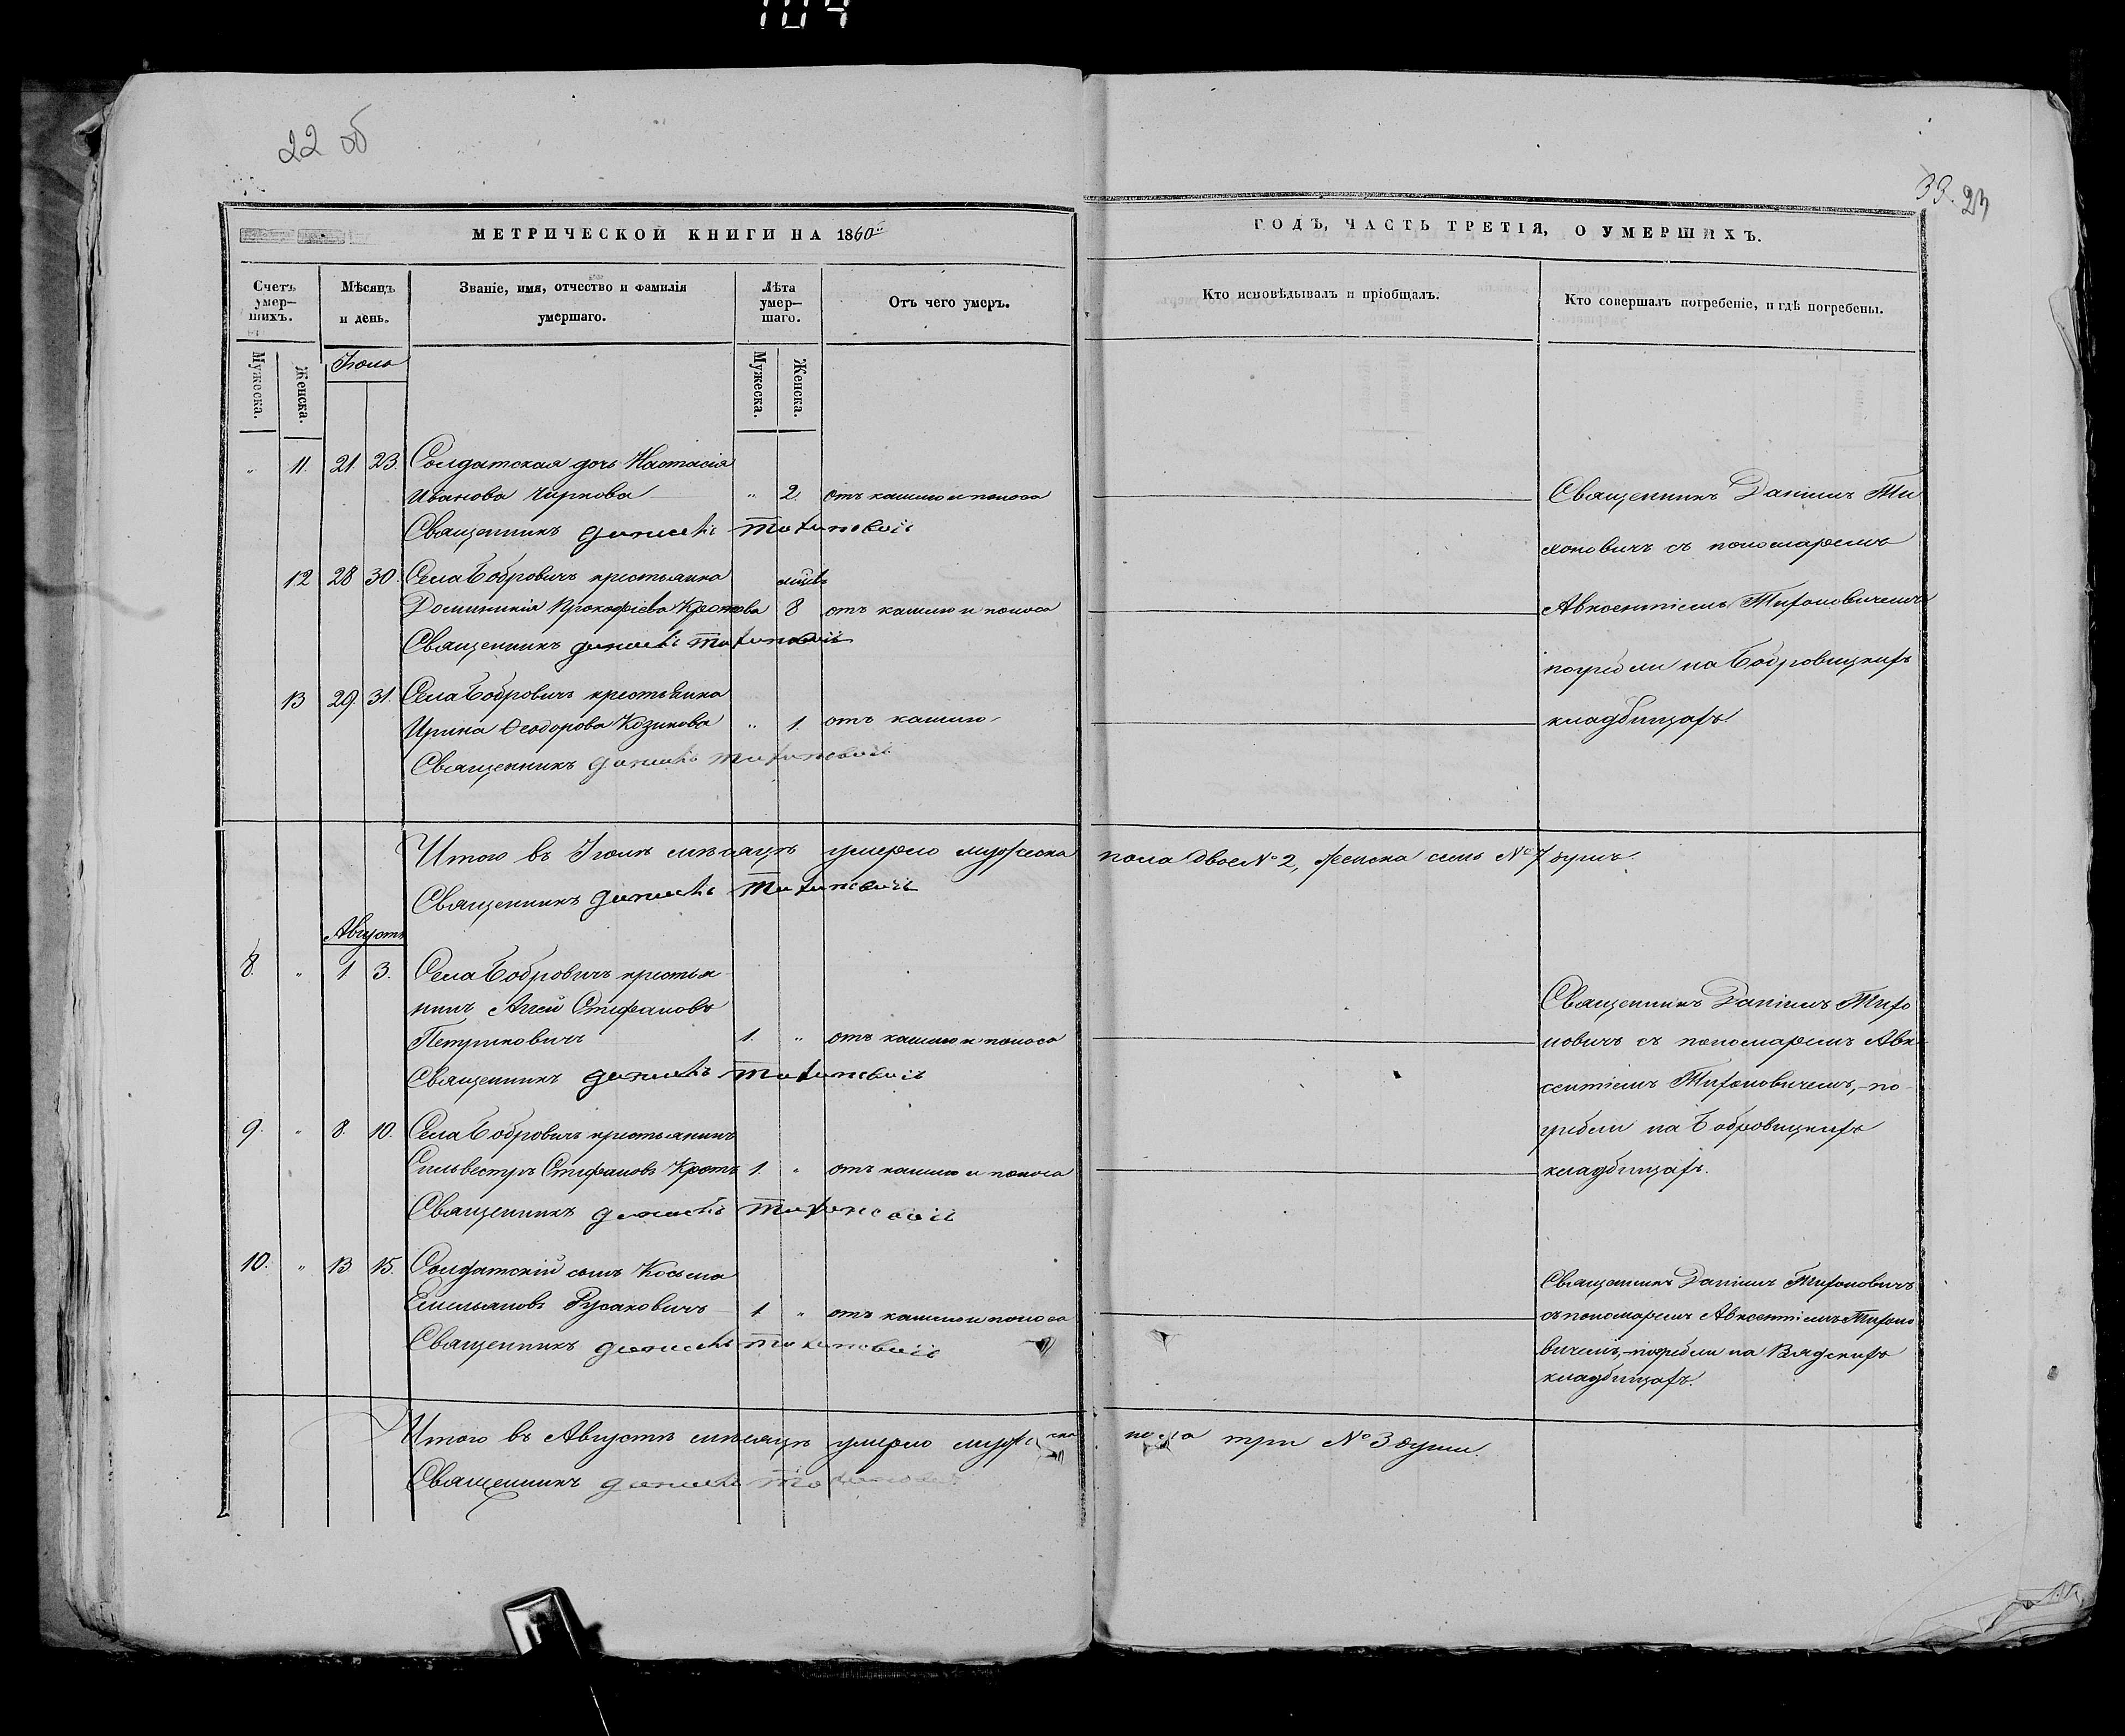 104
22 об
33. 23
МЕТРИЧЕСКОЙ КНИГИ НА 1860й
ГОДЪ, ЧАСТЬ ТРЕТІЯ, О УМЕРШИХЪ.
Счетъ умер–шихъ.
Мѣсяцъ и день.
Званіе, имя, отчество и фамилія умершаго.
Лѣта умер–шаго.
Отъ чего умеръ.
Кто исповѣдывалъ и пріобщалъ.
Кто совершалъ погребеніе, и гдѣ погребены.
Мужеска.
Женска.
Іюль
Мужеска.
Женска.
" 11. 21. 23. Солдатская дочь Настасія
Иванова Чиркова " 2. отъ кашлю и поноса
Священникъ Даніилъ Тихоновичъ
Священникъ Даніилъ Ти
хоновичъ съ пономаремъ
Авксентіемъ Тихоновичемъ
погребли на Бобровицкихъ
кладбищахъ.
12 28 30. Села Бобровичъ крестьянка мѣсѣ
Домникія Прокофіева Кротова 8 отъ кашлю и поноса
Священникъ Даніилъ Тихоновичъ
13 29. 31. Села Бобровичъ крестьянка
Ирина Ѳеодорова Козикова " 1. отъ кашлю
Священникъ Даніилъ Тихоновичъ
Итого въ Іюлѣ мѣсяцѣ умерло мужеска пола двое № 2, женска семь № 7 душъ.
Священникъ Даніилъ Тихоновичъ
Августъ
8. " 1. 3. Села Бобровичъ крестья
нинъ Аггей Стефановъ
Петриковичъ 1. " отъ кашлю и поноса
Священникъ Даніилъ Тихоновичъ
Священникъ Даніилъ Тихо
новичъ съ пономаремъ Авк
сентіемъ Тихоновичемъ, по
гребли на Бобровицкихъ
кладбищахъ.
9. " 8. 10. Села Бобровичъ крестьянинъ
Сильвестръ Стефановъ Кротъ 1. " отъ кашлю и поноса
Священникъ Даніилъ Тихоновичъ
10. " 13 15. Солдатскій сынъ Косьма
Емельяновъ Русаковичъ 1 " отъ кашлю и поноса
Священникъ Даніилъ Тихоновичъ
Священникъ Даніилъ Тихоновичъ
съ пономаремъ Авксентіемъ Тихоно
вичемъ, погребли на Вядскихъ
кладбищахъ.
Итого въ Августѣ мѣсяцѣ умерло мужеска пола три № 3 души.
Священникъ Даніилъ Тихоновичъ